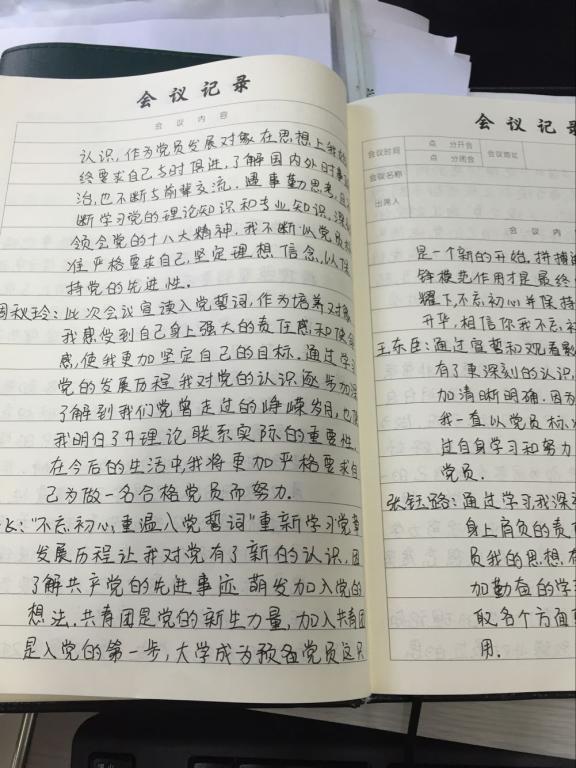 会议记录
会议内容
认识，作为党员发展对象在思想上我始
终要求自己与时俱进，了解国内外时事
治，也不断与前辈交流。遇事勤思考，
断学习党的理论知识和专业知识，深
领会党的十八大精神，我不断以党员
准严格要求自己，坚定理想信念，以保
持党的先进性。
周秋玲：此次会议宣读入党誓词，作为培养对象
我感受到自己身上强大的责任感和使命
感，使我更加坚定自己的目标。通过学习
党的发展历程我对党的认识逐步加深
了解到我们党曾走过的峥嵘岁月，也
我明白了开理论联系实际的重要性。
在今后的生活中，我将更加严格要求自
己为做一名合格党员而努力。
长：“不忘初心，重温入党誓词”重新学习党章
发展历程让我对党有了新的认识，因
了解共产党的先进事迹萌发加入党的
想法，共青团是党的新生力量，加入共青团
是入党的第一步，大学成为预备党员这只
会议记录
会议时间 点 分开会 会议地址
点 分闭会
会议名称
出席人
会议内
是一个新的开始。拼搏
锋模范作用才是最终
耀下，不忘初心并保持
升华，相信你我不忘初
王东臣：通过宣誓和观看影
有了更深刻的认识，
加清晰明确。因为
我一直以党员标准
过自身学习和努力
党员。
张钰璐：通过学习，我深
身上肩负的责
员我的思想有
加勤奋的学
取名个方面更
用.